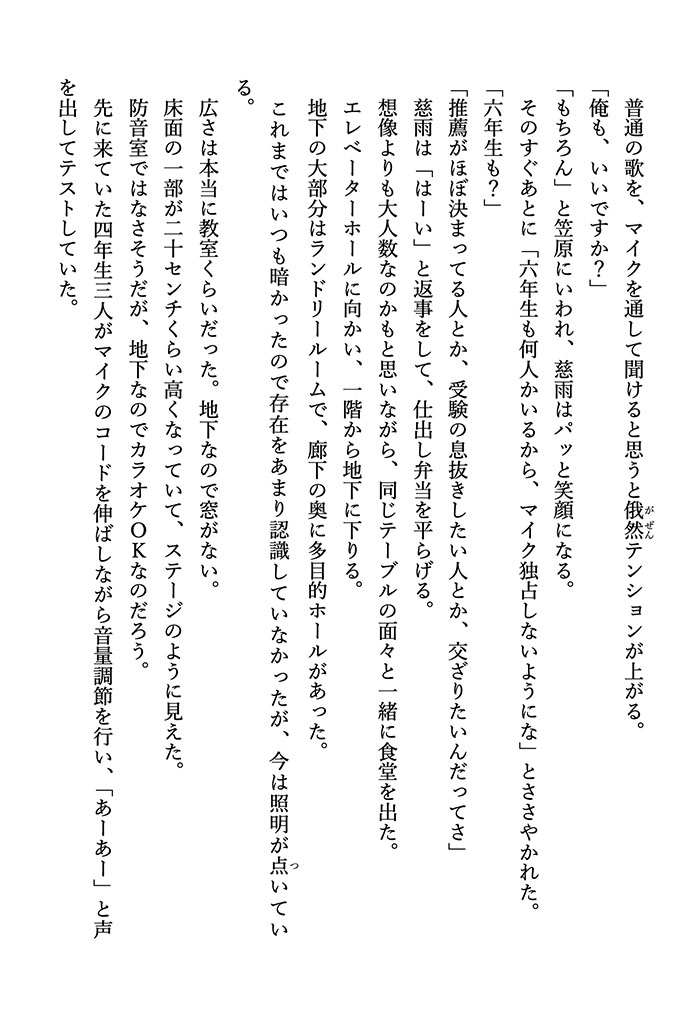 普通の歌を、マイクを通して聞けると思うと俄然テンションが上がる。
「俺も、いいですか？」
「もちろん」と笠原にいわれ、慈雨はパッと笑顔になる。
　そのすぐあとに「六年生も何人かいるから、マイク独占しないようにな」とささやかれた。
「六年生も？」
「推薦がほぼ決まってる人とか、受験の息抜きしたい人とか、交ざりたいんだってさ」
　慈雨は「はーい」と返事をして、仕出し弁当を平らげる。
　想像よりも大人数なのかもと思いながら、同じテーブルの面々と一緒に食堂を出た。
　エレベーターホールに向かい、一階から地下に下りる。
　地下の大部分はランドリールームで、廊下の奥に多目的ホールがあった。
　これまではいつも暗かったので存在をあまり認識していなかったが、今は照明が点いてい
る。
　広さは本当に教室くらいだった。地下なので窓がない。
　床面の一部が二十センチくらい高くなっていて、ステージのように見えた。
　防音室ではなさそうだが、地下なのでカラオケOKなのだろう。
　先に来ていた四年生三人がマイクのコードを伸ばしながら音量調節を行い、「あーあー」と声
を出してテストしていた。